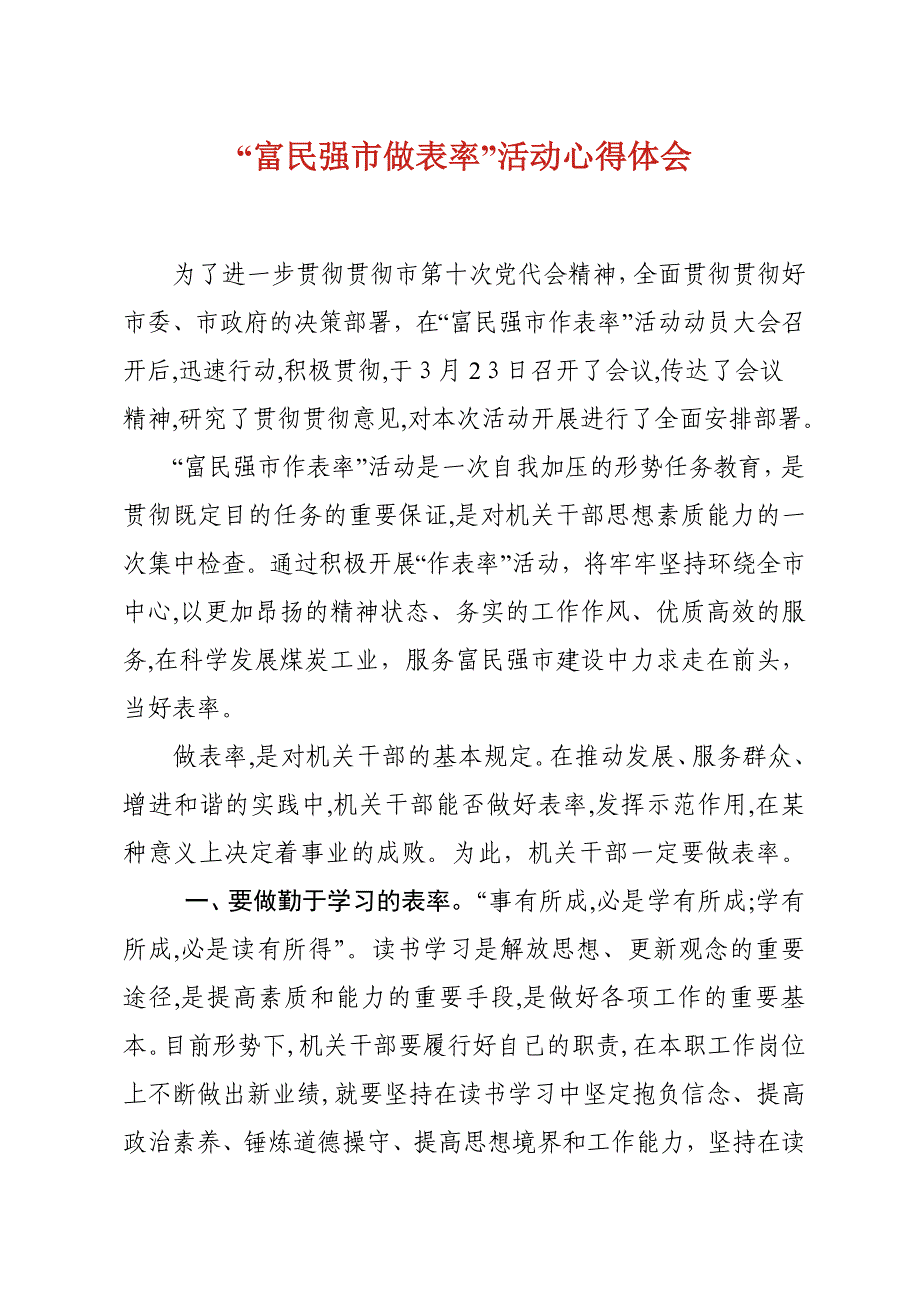 “富民强市做表率”活动心得体会
为了进一步贯彻贯彻市第十次党代会精神，全面贯彻贯彻好
市委、市政府的决策部署，在“富民强市作表率”活动动员大会召
开后,迅速行动,积极贯彻,于３月２３日召开了会议,传达了会议
精神,研究了贯彻贯彻意见,对本次活动开展进行了全面安排部署。
“富民强市作表率”活动是一次自我加压的形势任务教育，是
贯彻既定目的任务的重要保证,是对机关干部思想素质能力的一
次集中检查。通过积极开展“作表率”活动，将牢牢坚持环绕全市
中心,以更加昂扬的精神状态、务实的工作作风、优质高效的服
务,在科学发展煤炭工业，服务富民强市建设中力求走在前头，
当好表率。
做表率,是对机关干部的基本规定。在推动发展、服务群众、
增进和谐的实践中,机关干部能否做好表率,发挥示范作用,在某
种意义上决定着事业的成败。为此，机关干部一定要做表率。
一、要做勤于学习的表率。“事有所成,必是学有所成;学有
所成,必是读有所得”。读书学习是解放思想、更新观念的重要
途径,是提高素质和能力的重要手段,是做好各项工作的重要基
本。目前形势下,机关干部要履行好自己的职责,在本职工作岗位
上不断做出新业绩,就要坚持在读书学习中坚定抱负信念、提高
政治素养、锤炼道德操守、提高思想境界和工作能力，坚持在读